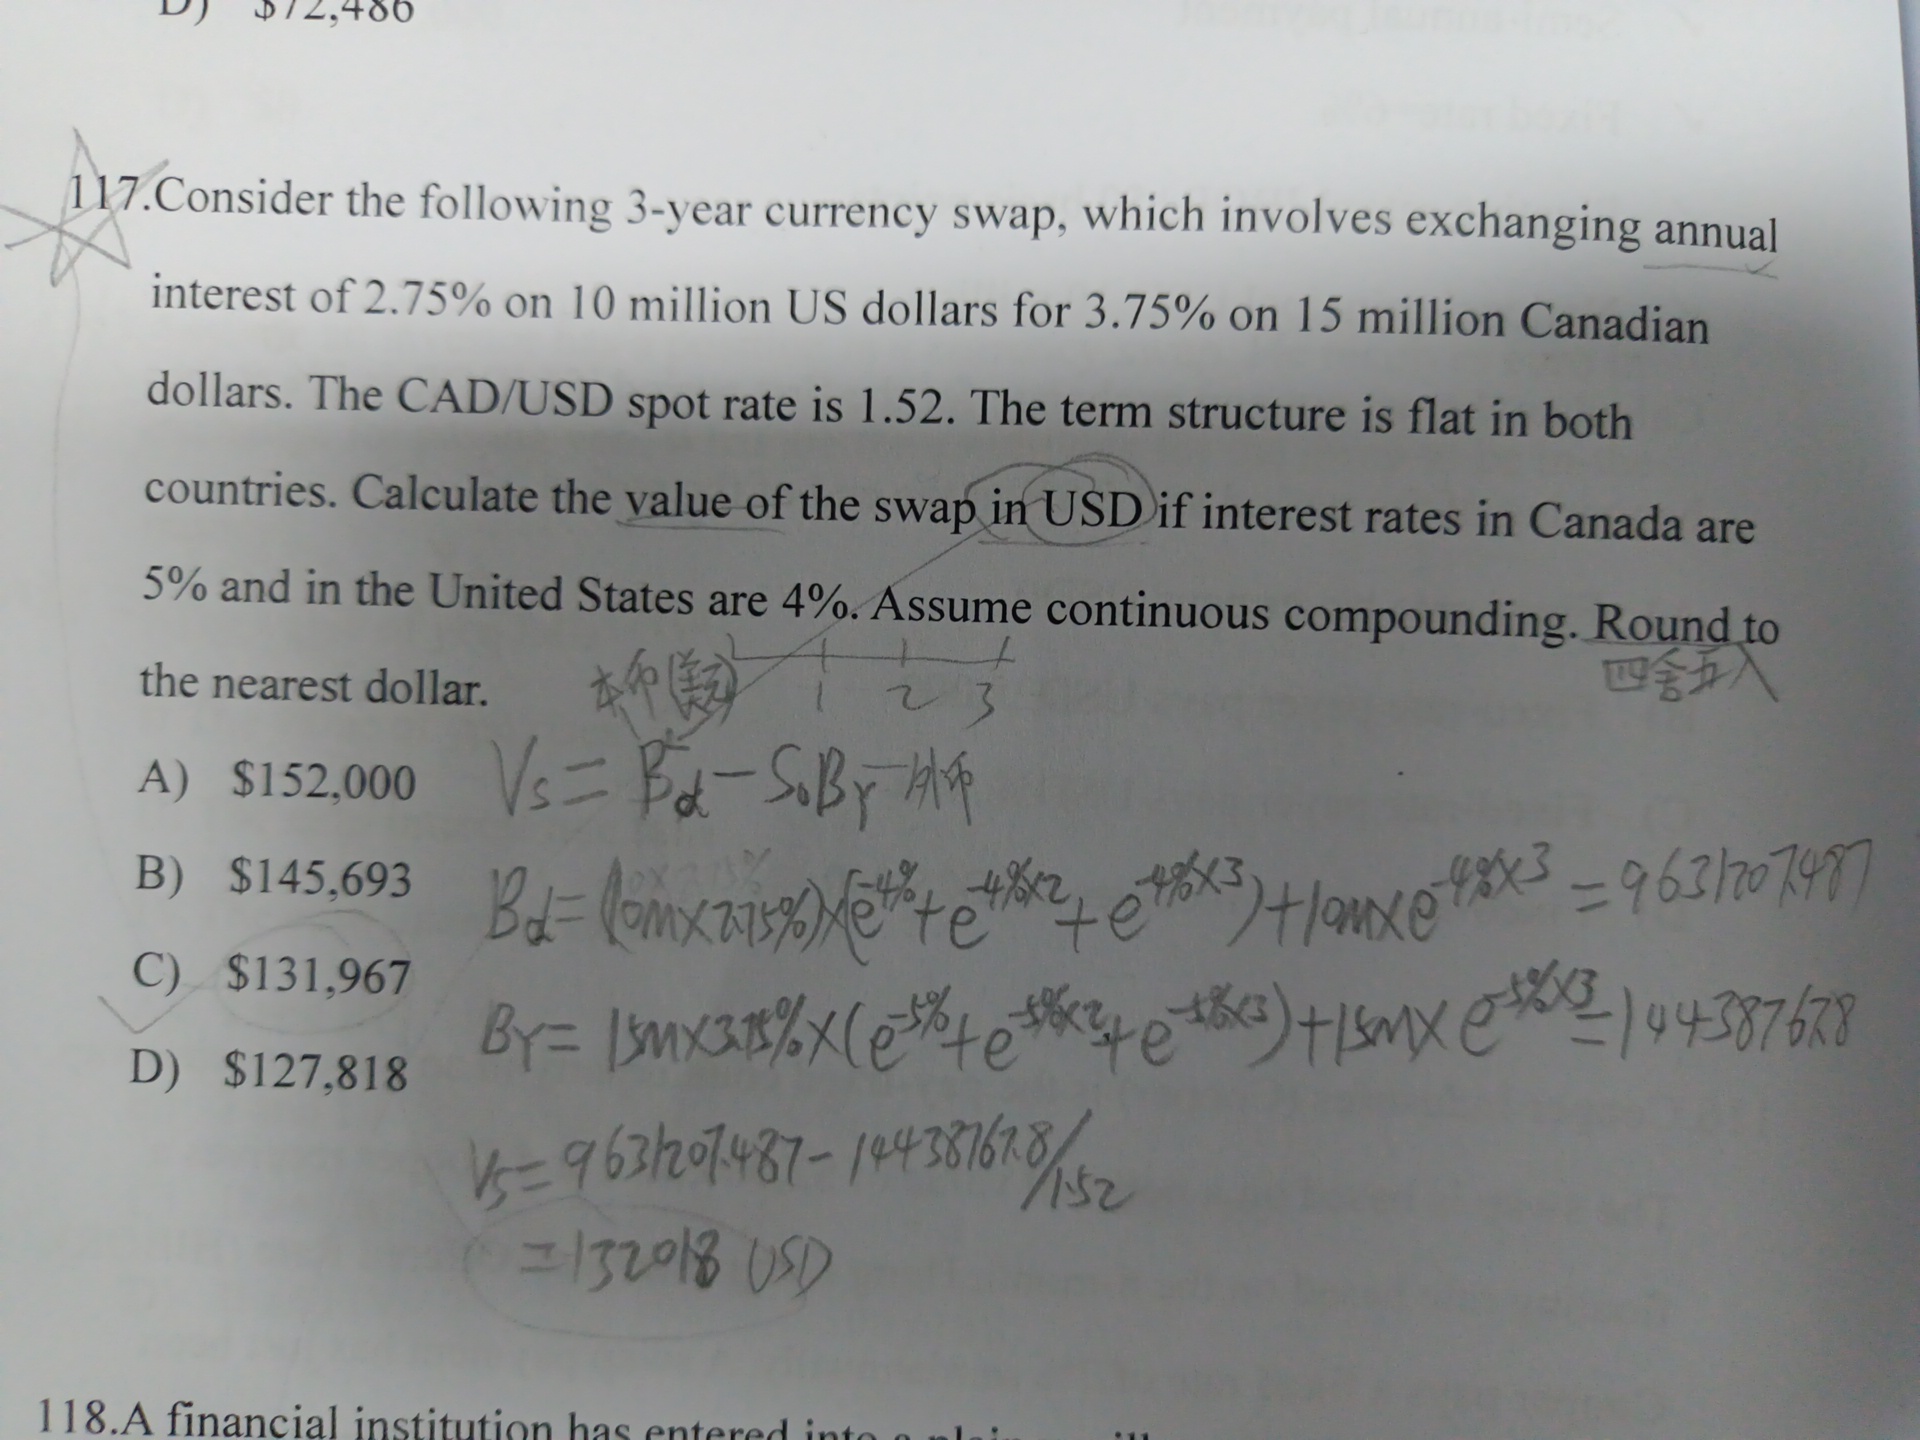 D) $72,486
117.Consider the following 3-year currency swap, which involves exchanging annual
interest of 2.75% on 10 million US dollars for 3.75% on 15 million Canadian
dollars. The CAD/USD spot rate is 1.52. The term structure is flat in both
countries. Calculate the value of the swap in USD if interest rates in Canada are
5% and in the United States are 4%. Assume continuous compounding. Round to
四舍五入
the nearest dollar.
本币(美元)
1 2 3
A) $152,000
Vs = Bd - S₀Bf - 外币
B) $145,693
Bd = (10m×2.75%)×(e^-4% + e^-4%×2 + e^-4%×3) + 10m×e^-4%×3 = 9631207.487
C) $131,967
Bf = 15m×3.75%×(e^-5% + e^-5%×2 + e^-5%×3) + 15m×e^-5%×3 = 14438767.8
D) $127,818
Vs = 9631207.487 - 14438767.8/1.52
= 132018 USD
118.A financial institution has entered into a plain